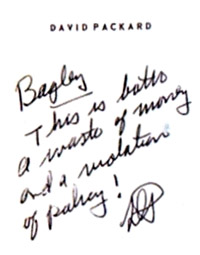 DAVID PACKARD
Bagley
This is both
a waste of money
and a violation
of policy!
DP